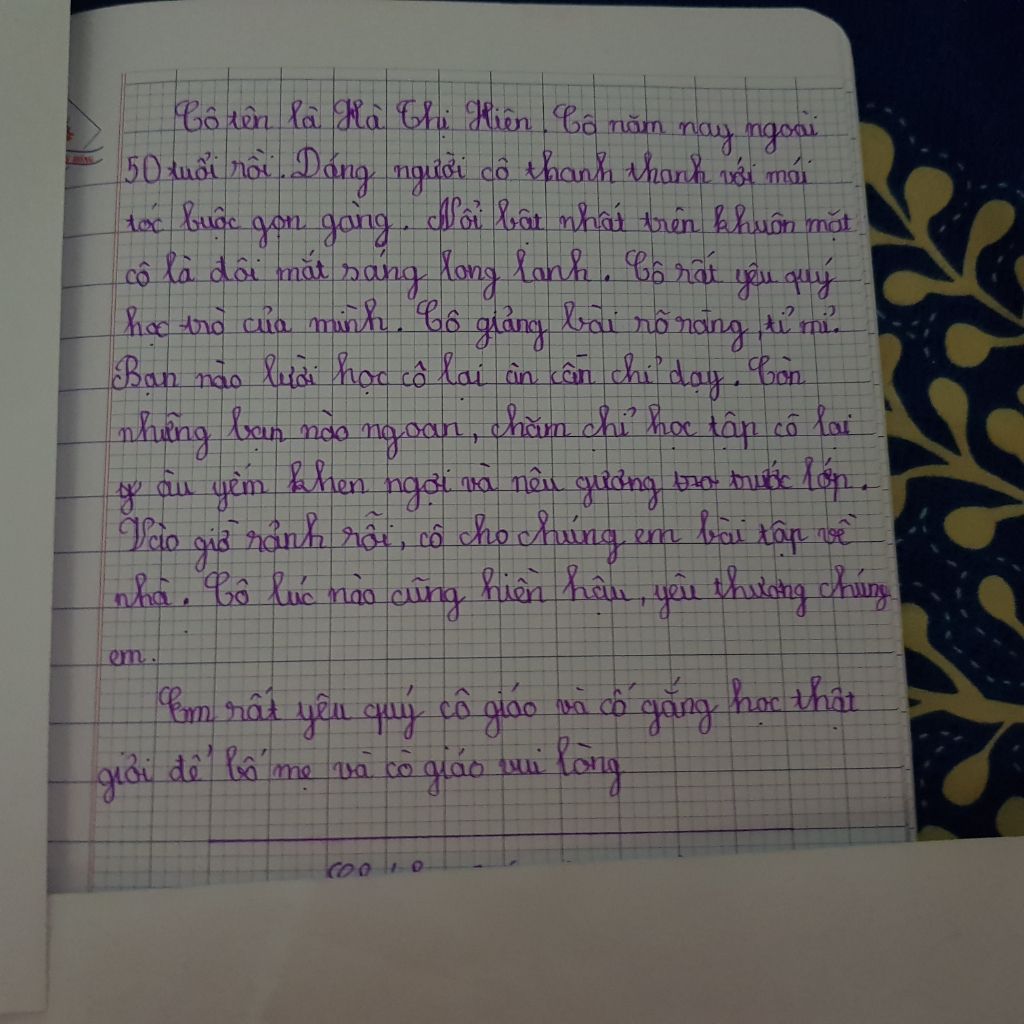 Cô tên là Hà Thị Hiên. Cô năm nay ngoài
50 tuổi rồi. Dáng người cô thanh thanh với mái
tóc buộc gọn gàng. Nổi bật nhất trên khuôn mặt
cô là đôi mắt sáng long lanh. Cô rất yêu quý
học trò của mình. Cô giảng bài rõ ràng, tỉ mỉ.
Bạn nào lười học cô lại ân cần chỉ dạy. Còn
những bạn nào ngoan, chăm chỉ học tập cô lại
âu yếm khen ngợi và nêu gương trước lớp.
Vào giờ rảnh rỗi, cô cho chúng em bài tập về
nhà. Cô lúc nào cũng hiền hậu, yêu thương chúng
em.
Em rất yêu quý cô giáo và cố gắng học thật
giỏi để bố mẹ và cô giáo vui lòng